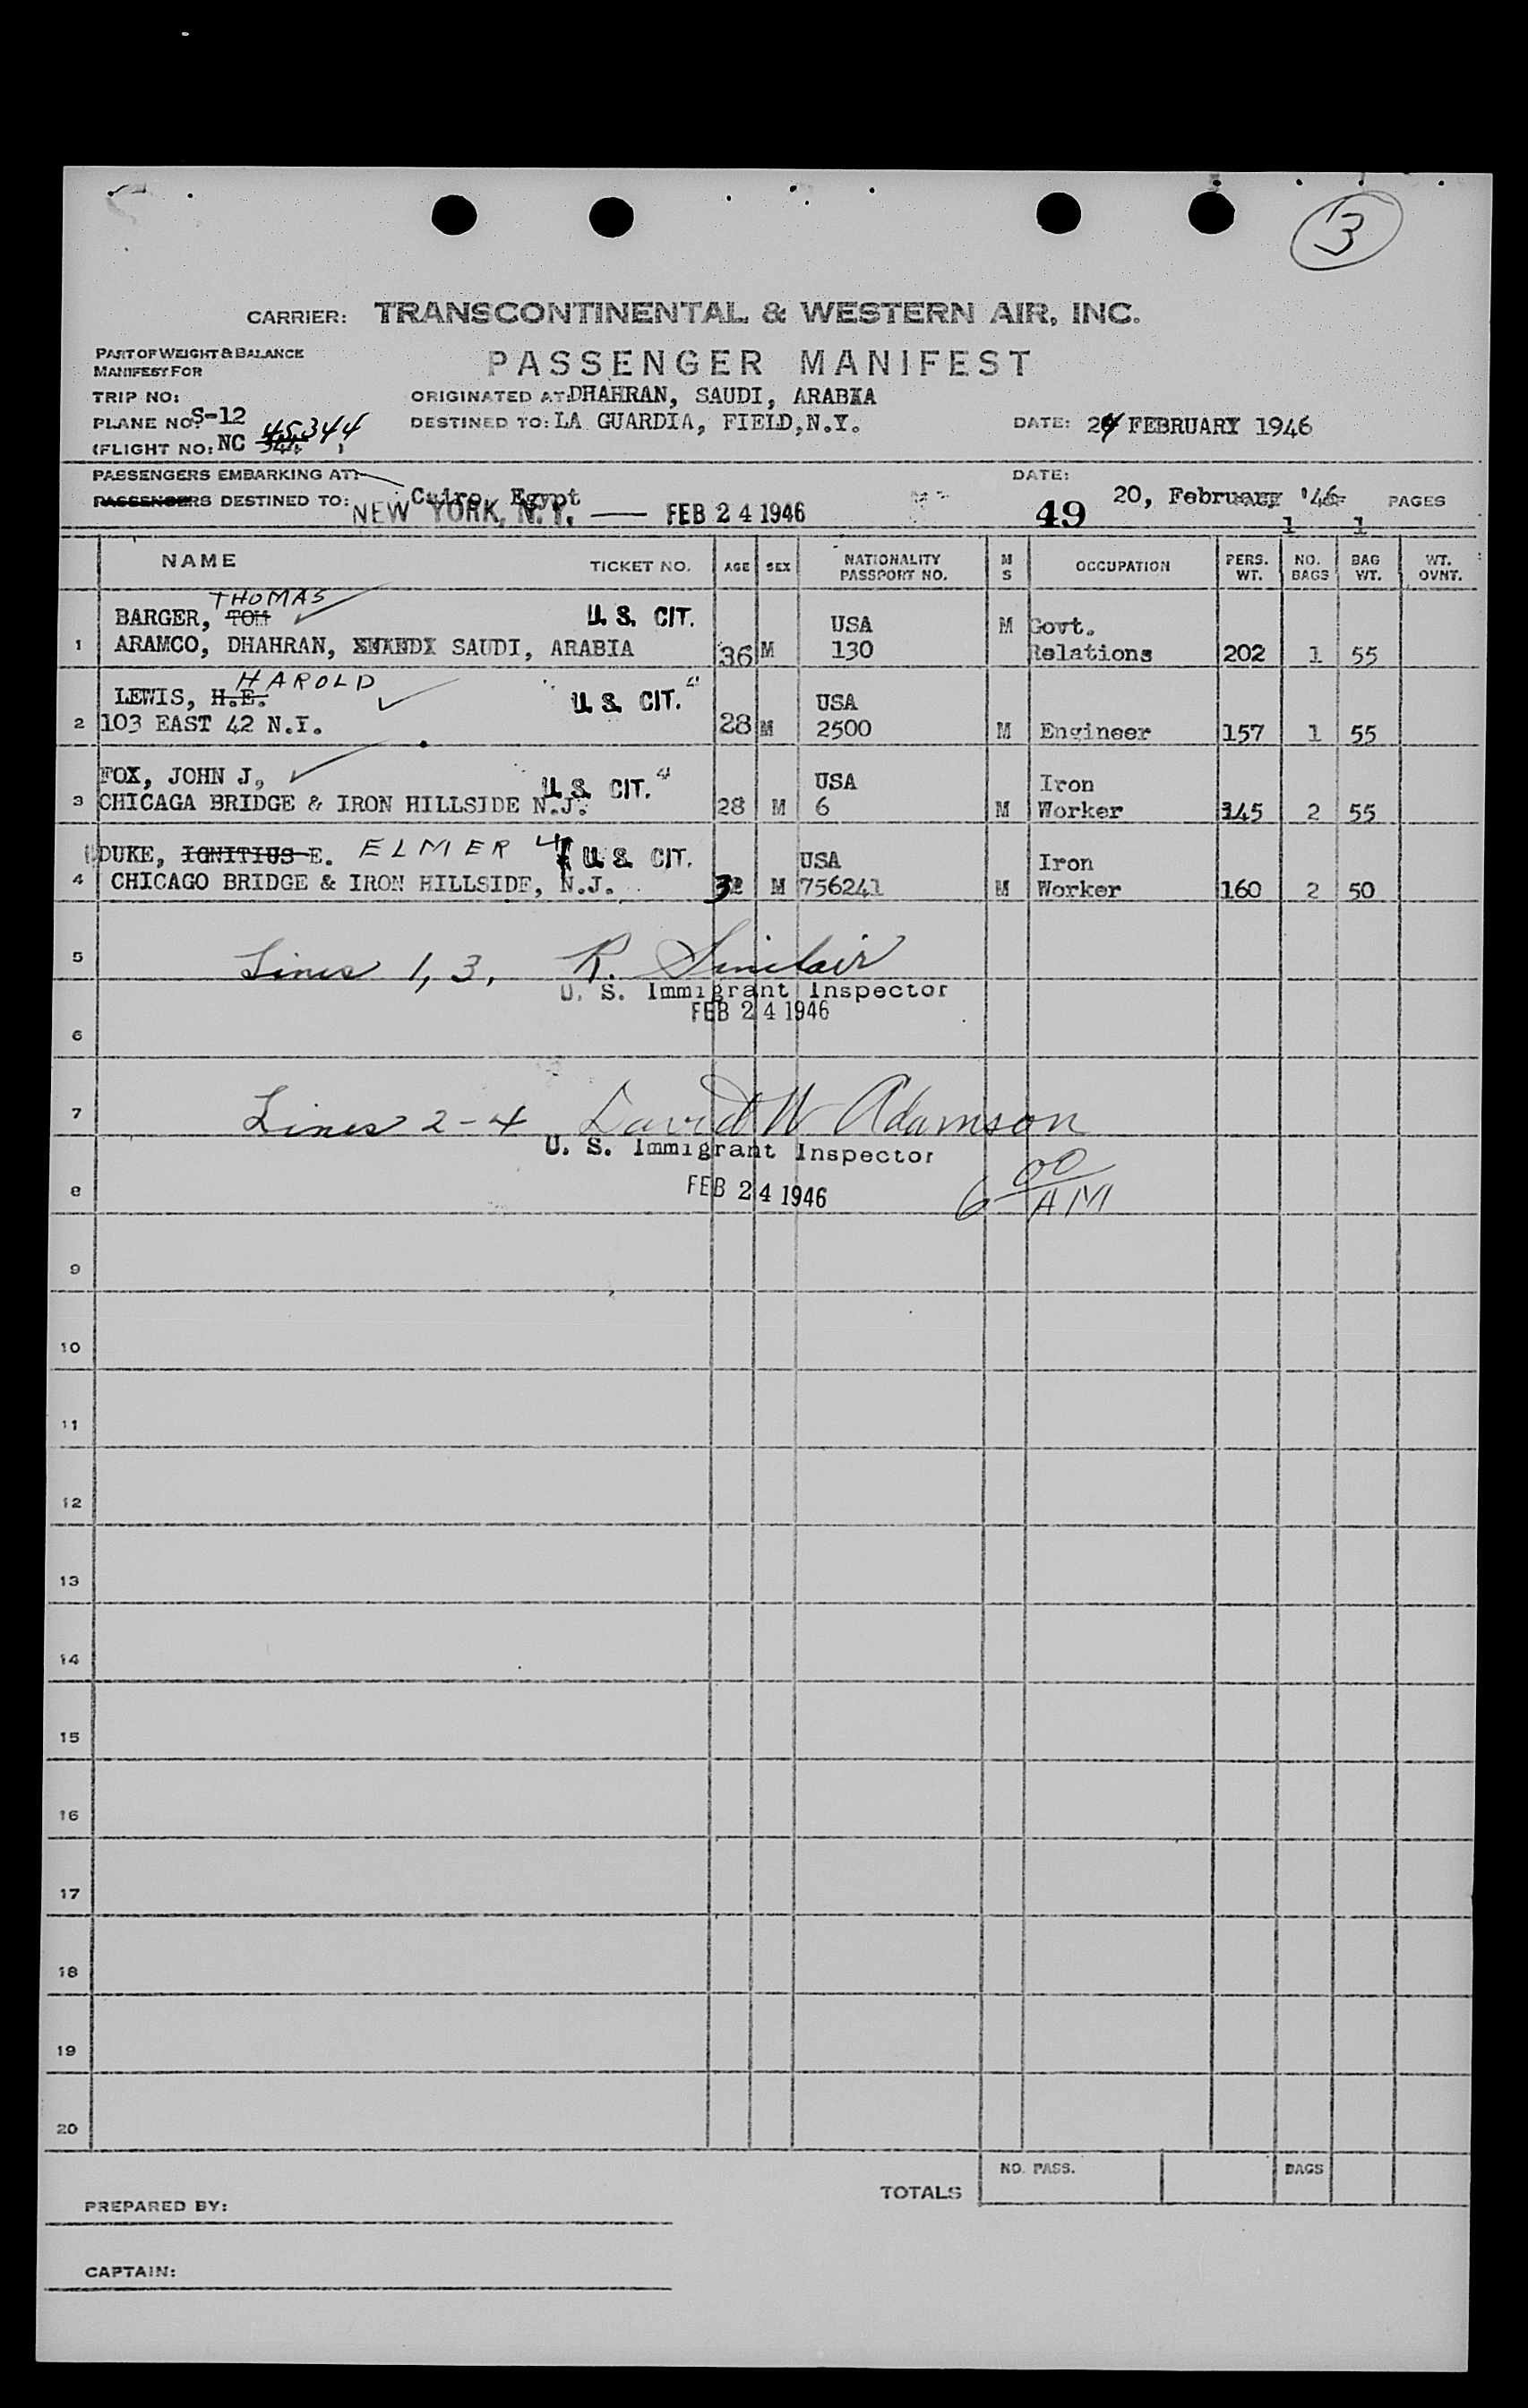 3
CARRIER: TRANSCONTINENTAL & WESTERN AIR, INC.
PART OF WEIGHT & BALANCE
MANIFEST FOR
PASSENGER MANIFEST
TRIP NO: ORIGINATED AT: DHAHRAN, SAUDI, ARABIA
PLANE NO: S-12 DESTINED TO: LA GUARDIA, FIELD, N.Y. DATE: 24 FEBRUARY 1946
(FLIGHT NO: NC 45344
PASSENGERS EMBARKING AT: DATE:
PASSENGERS DESTINED TO: Cairo, Egypt 20, February '46 PAGES
NEW YORK, N.Y. — FEB 24 1946 49 1 1
NAME TICKET NO. AGE SEX NATIONALITY PASSPORT NO. M S OCCUPATION PERS. WT. NO. BAGS BAG WT. WT. OVNT.
THOMAS
BARGER, TOM U. S. CIT. USA M Govt.
1 ARAMCO, DHAHRAN, SAUDI, ARABIA 36 M 130 Relations 202 1 55
HAROLD
LEWIS, H.E. U. S. CIT. " USA
2 103 EAST 42 N.Y. 28 M 2500 M Engineer 157 1 55
FOX, JOHN J, U. S. CIT. " USA Iron
3 CHICAGA BRIDGE & IRON HILLSIDE N.J. 28 M 6 M Worker 145 2 55
DUKE, IGNITIUS E. ELMER U. S. CIT. USA Iron
4 CHICAGO BRIDGE & IRON HILLSIDE, N.J. M 756241 M Worker 160 2 50
5 Lines 1, 3, R. Sinclair
U. S. Immigrant Inspector
FEB 24 1946
6
7 Lines 2-4 David W Adamson
U. S. Immigrant Inspector
8 FEB 24 1946 6 00 AM
9
10
11
12
13
14
15
16
17
18
19
20
NO. PASS. BAGS
TOTALS
PREPARED BY:
CAPTAIN: